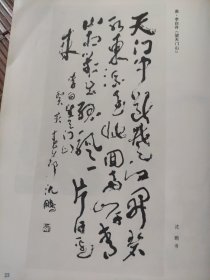 唐·李白诗《望天门山》
天门中断楚江开碧
水东流至此回两岸青
山相对出孤帆一片日边
来
李白望天门山
沈鹏
沈鹏 书